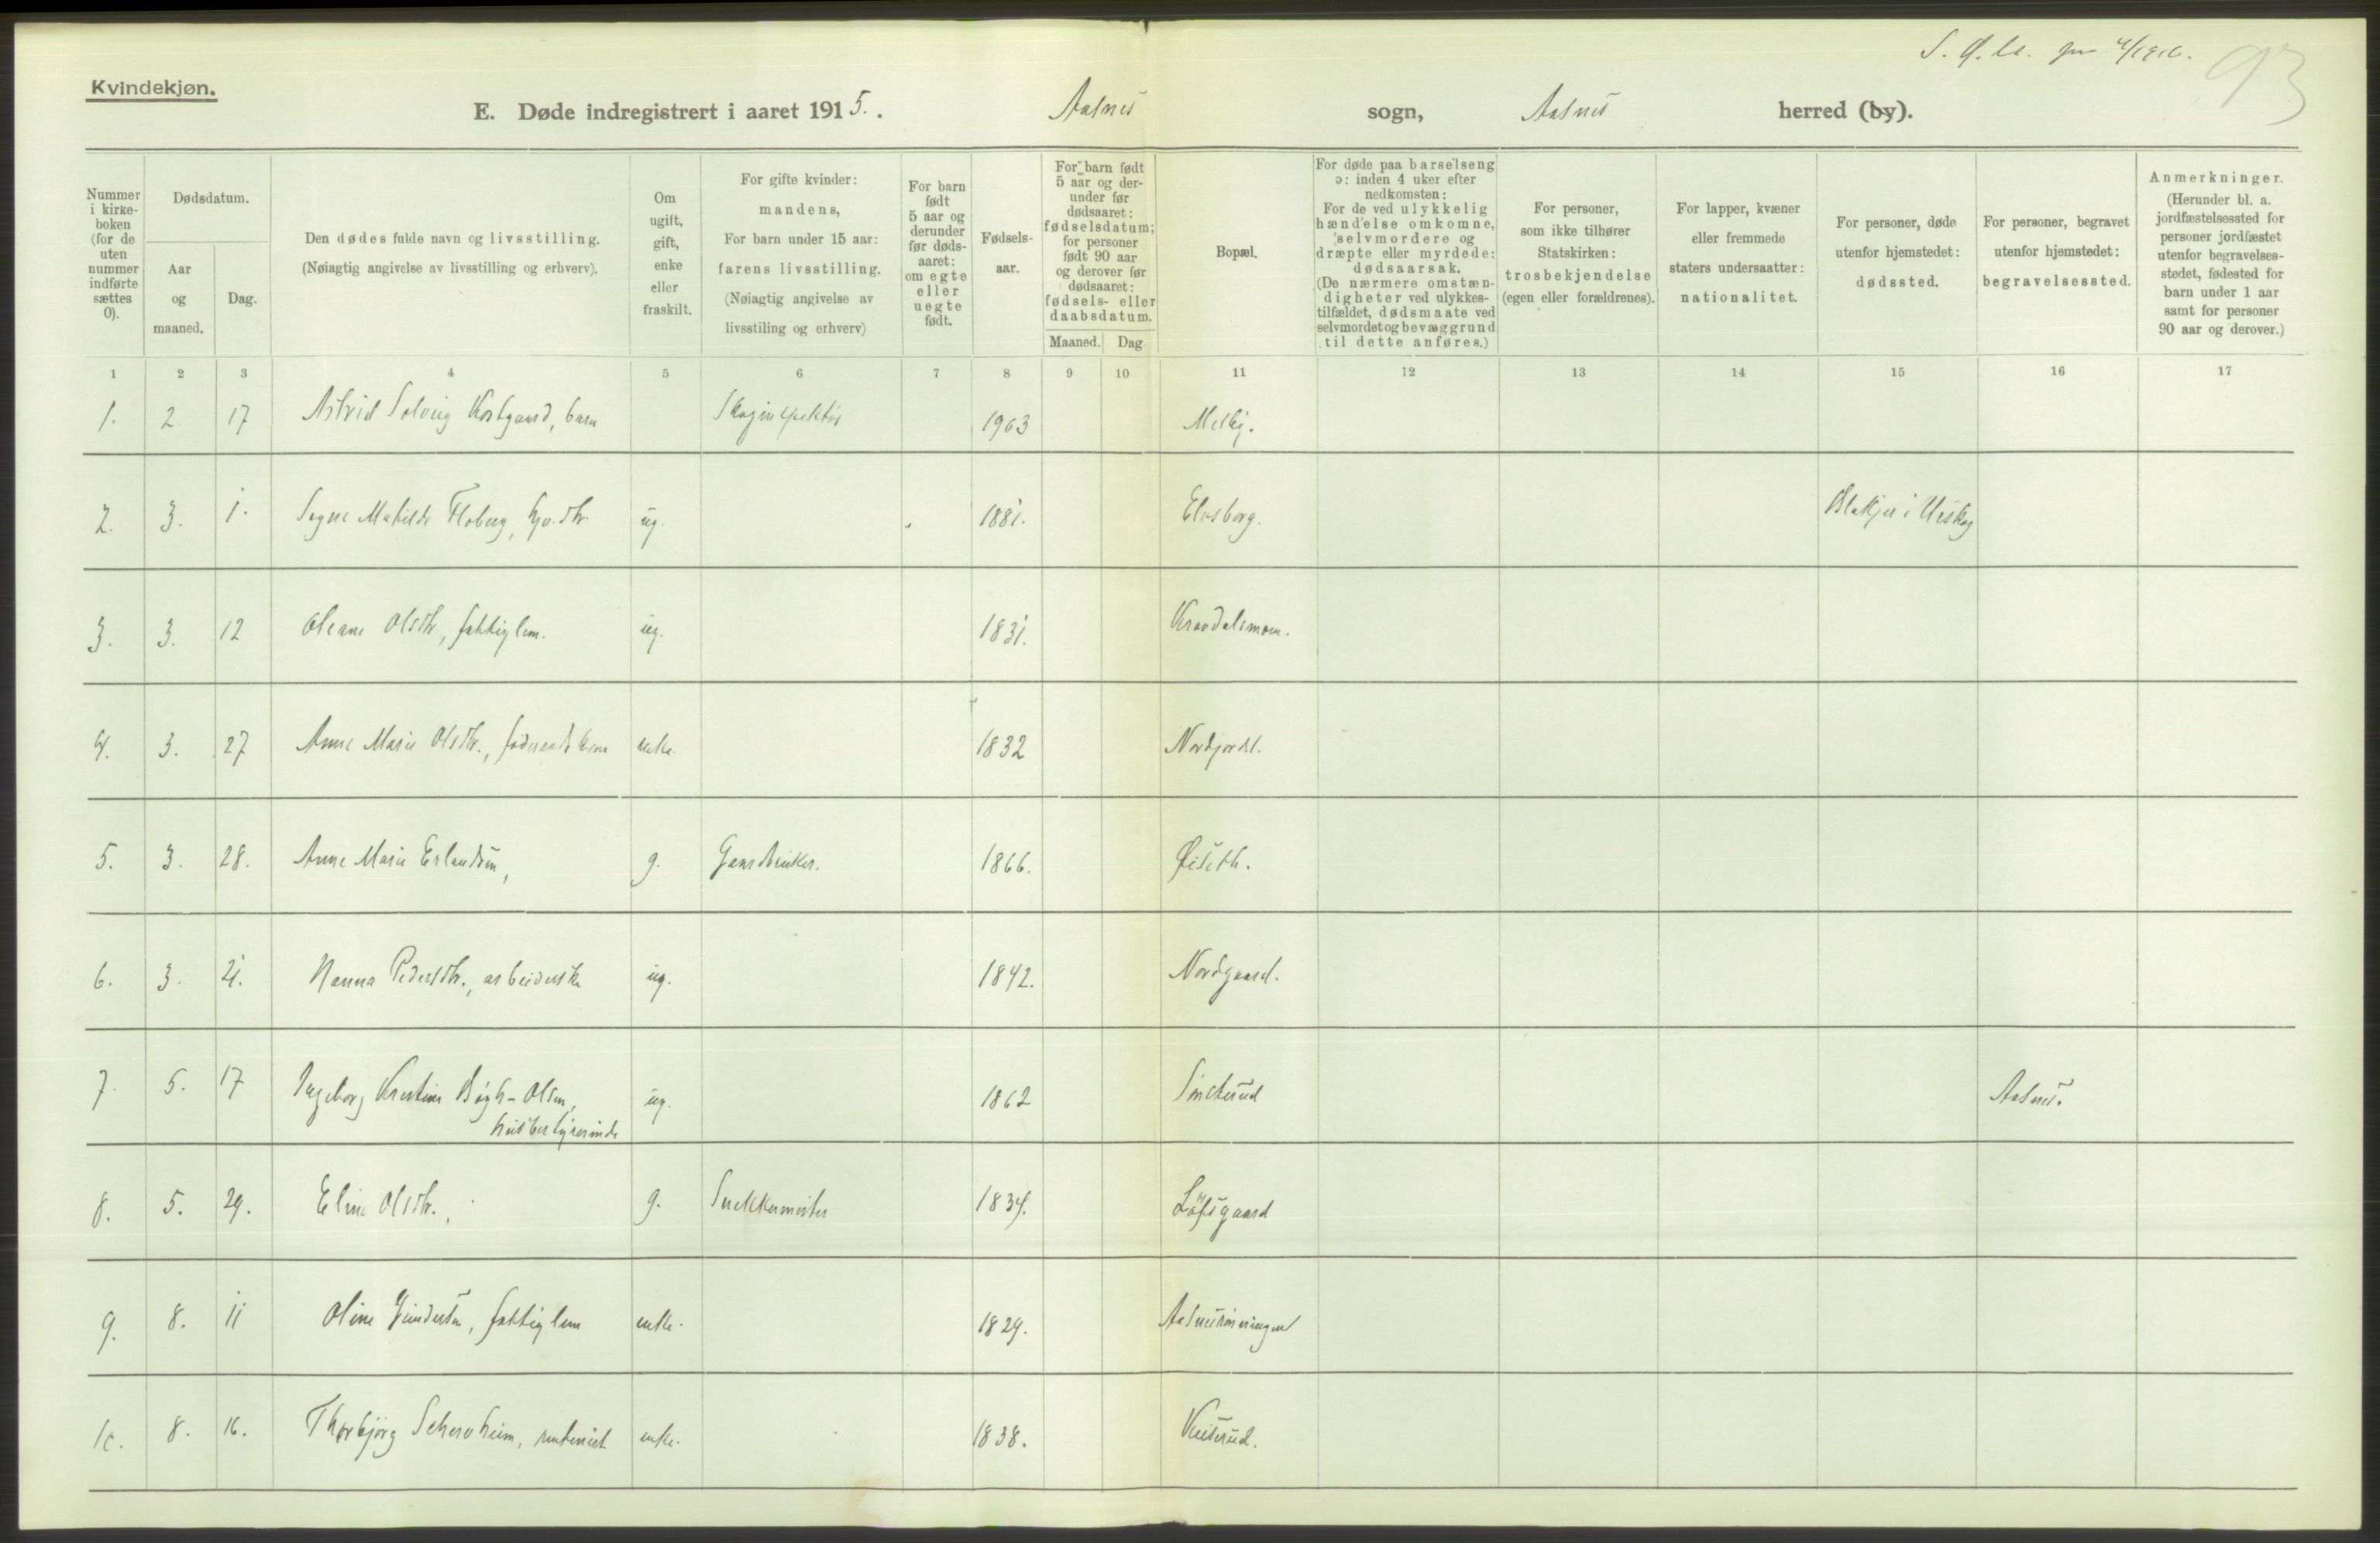 Kvindekjøn.
93
E. Døde indregistrert i aaret 1915. Aasnes sogn, Aasnes herred (by).
Nummer i kirke- boken (for de uten nummer indførte sættes 0).
Dødsdatum.
Aar og maaned.
Dag.
Den dødes fulde navn og livsstilling.
(Nøiagtig angivelse av livsstilling og erhverv).
Om ugift, gift, enke eller fraskilt.
For gifte kvinder: mandens,
For barn under 15 aar: farens livsstilling.
(Nøiagtig angivelse av livsstiling og erhverv)
For barn født 5 aar og derunder før døds- aaret: om egte eller uegte født.
Fødsels- aar.
For barn født 5 aar og der- under før dødsaaret: fødselsdatum; for personer født 90 aar og derover før dødsaaret: fødsels- eller daabsdatum.
Maaned. Dag
Bopæl.
For døde paa barselseng ɔ: inden 4 uker efter nedkomsten: For de ved ulykkelig hændelse omkomne, selvmordere og dræpte eller myrdede: dødsaarsak. (De nærmere omstæn- digheter ved ulykkes- tilfældet, dødsmaate ved selvmordet og bevæggrund til dette anføres.)
For personer, som ikke tilhører Statskirken: trosbekjendelse (egen eller forældrenes).
For lapper, kvæner eller fremmede staters undersaatter: nationalitet.
For personer, døde utenfor hjemstedet: dødssted.
For personer, begravet utenfor hjemstedet: begravelsessted.
Anmerkninger. (Herunder bl. a. jordfæstelsessted for personer jordfæstet utenfor begravelses- stedet, fødested for barn under 1 aar samt for personer 90 aar og derover.)
1 2 3 4 5 6 7 8 9 10 11 12 13 14 15 16 17
1. 2 17 Astrid Solveig Kostgaard, barn 1903 Melby.
2. 3. 1. Signe Matilde Floberg, ug. 1881. Elvsborg. Blakjer i Urskog
3. 3. 12 Oleane Olsdtr, fattiglem. ug. 1831.
4. 3. 27 Anne Marie Olsdtr., enke. 1832 Nordjordet.
5. 3. 28. Anne Marie Erlandsen, g. Gaardbruker. 1866. Øiseth.
6. 3. 21. Nanna Pedersdtr., arbeiderske ug. 1842. Nordgaard.
7. 5. 17 Ingeborg Kristine Bøgh-Olsen, ug. 1862 Aasnes.
husbestyrerinde
8. 5. 29. Eline Olsdtr., g. Snekkermester 1834. Løfsgaard
9. 8. 11 Oline Gundersen, fattiglem enke. 1829.
10. 8. 16. Thorbjørg enke. 1838.